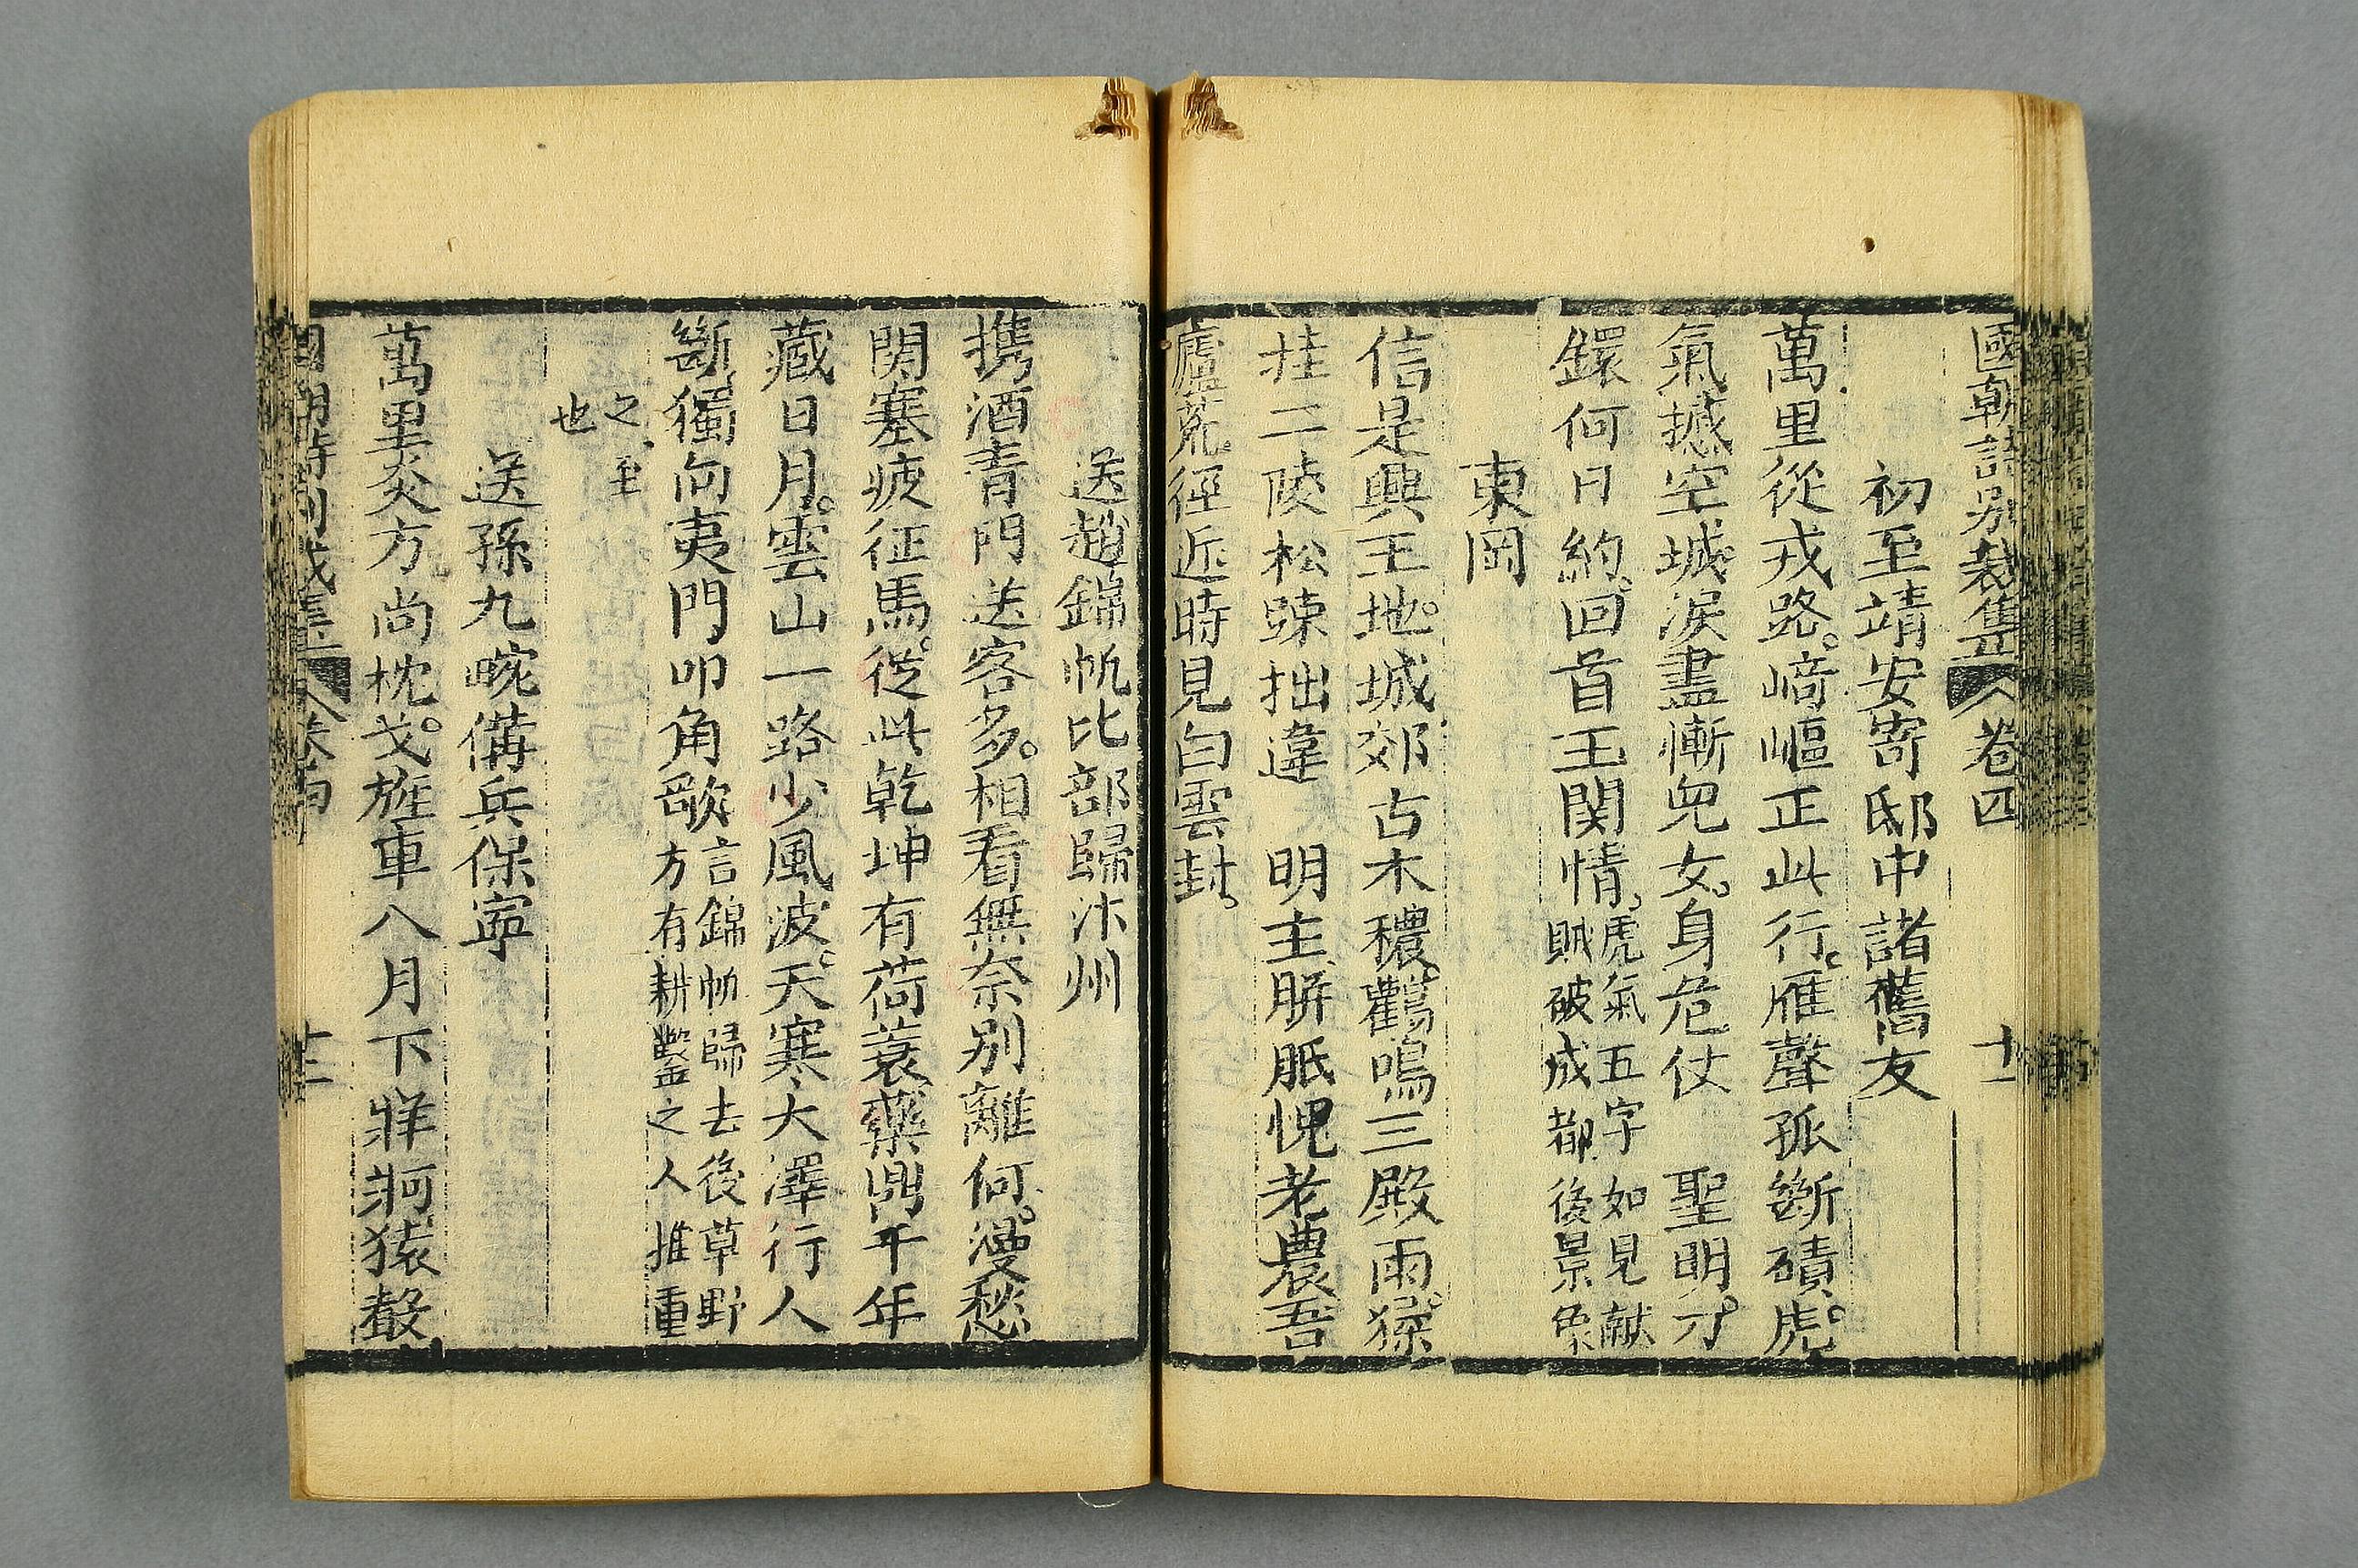 國朝詩別裁集 卷四 十一
初至靖安寄邸中諸舊友
萬里從戎路崎嶇正此行雁聲孤斷磧虎
氣撼空城淚盡慚兒女身危仗 聖明刀
鐶何日約回首玉関情虎氣五字如見献
賊破成都後景象
東岡
信是興王地城郊古木穠鸛鳴三殿雨猱
挂二陵松踈拙違 明主胼胝愧老農吾
廬荒徑近時見白雲封
送趙錦帆比部歸汴州
携酒青門送客多相看無奈别離何漫愁
関塞疲征馬從此乾坤有荷蓑藥鼎千年
藏日月雲山一路少風波天寒大澤行人
斷獨向夷門叩角歌言錦帆歸去後草野
方有耕鑿之人推重
之至
也
送孫九畹備兵保寧
萬里炎方尚枕戈旌車八月下牂牁猿聲